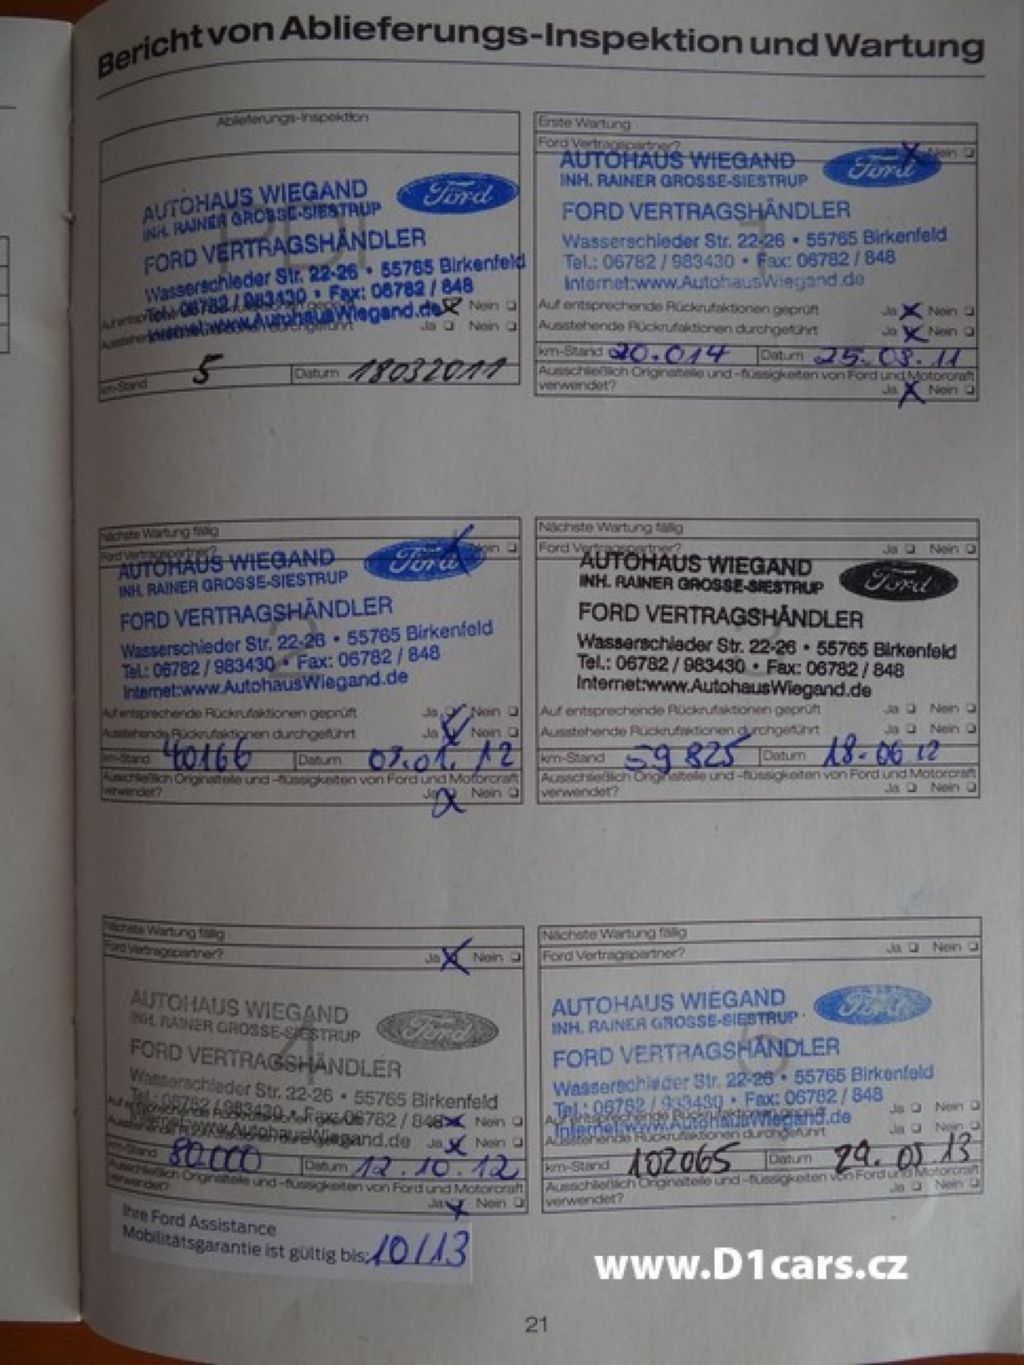 Bericht von Ablieferungs-Inspektion und Wartung
Ablieferungs-Inspektion
AUTOHAUS WIEGAND
INH. RAINER GROSSE-SIESTRUP
Ford
FORD VERTRAGSHÄNDLER
Wasserschieder Str. 22-26 • 55765 Birkenfeld
Tel.: 06782 / 983430 • Fax: 06782 / 848
Internet:www.AutohausWiegand.de
Nein
Ja Nein
km-Stand 5 Datum 18032011
Erste Wartung
Ford Vertragspartner? Nein
AUTOHAUS WIEGAND
INH. RAINER GROSSE-SIESTRUP
Ford
FORD VERTRAGSHÄNDLER
Wasserschieder Str. 22-26 • 55765 Birkenfeld
Tel.: 06782 / 983430 • Fax: 06782 / 848
Internet:www.AutohausWiegand.de
Auf entsprechende Rückrufaktionen geprüft Ja Nein
Ausstehende Rückrufaktionen durchgeführt Ja Nein
km-Stand 20.014 Datum 25.08.11
Ausschließlich Originalteile und -flüssigkeiten von Ford und Motorcraft
verwendet? Ja Nein
Nächste Wartung fällig
Ford Vertragspartner? Nein
AUTOHAUS WIEGAND
INH. RAINER GROSSE-SIESTRUP
Ford
FORD VERTRAGSHÄNDLER
Wasserschieder Str. 22-26 • 55765 Birkenfeld
Tel.: 06782 / 983430 • Fax: 06782 / 848
Internet:www.AutohausWiegand.de
Auf entsprechende Rückrufaktionen geprüft Ja Nein
Ausstehende Rückrufaktionen durchgeführt Ja Nein
km-Stand 40166 Datum 03.01.12
Ausschließlich Originalteile und -flüssigkeiten von Ford und Motorcraft
verwendet? Ja Nein
Nächste Wartung fällig
Ford Vertragspartner? Ja Nein
AUTOHAUS WIEGAND
INH. RAINER GROSSE-SIESTRUP
Ford
FORD VERTRAGSHÄNDLER
Wasserschieder Str. 22-26 • 55765 Birkenfeld
Tel.: 06782 / 983430 • Fax: 06782 / 848
Internet:www.AutohausWiegand.de
Auf entsprechende Rückrufaktionen geprüft Ja Nein
Ausstehende Rückrufaktionen durchgeführt Ja Nein
km-Stand 59825 Datum 18-06 12
Ausschließlich Originalteile und -flüssigkeiten von Ford und Motorcraft
verwendet? Ja Nein
Nächste Wartung fällig
Ford Vertragspartner? Ja Nein
4
AUTOHAUS WIEGAND
INH. RAINER GROSSE-SIESTRUP
Ford
FORD VERTRAGSHÄNDLER
Wasserschieder Str. 22-26 • 55765 Birkenfeld
Tel.: 06782 / 983430 • Fax: 06782 / 848 Nein
www.AutohausWiegand.de Ja Nein
km-Stand 80.000 Datum 12.10.12
Ausschließlich Originalteile und -flüssigkeiten von Ford und Motorcraft
verwendet? Ja Nein
Ihre Ford Assistance
Mobilitätsgarantie ist gültig bis: 10/13
Nächste Wartung fällig
Ford Vertragspartner? Ja Nein
AUTOHAUS WIEGAND
INH. RAINER GROSSE-SIESTRUP
Ford
FORD VERTRAGSHÄNDLER
Wasserschieder Str. 22-26 • 55765 Birkenfeld
Tel.: 06782 / 983430 • Fax: 06782 / 848
Internet:www.AutohausWiegand.de
Auf entsprechende Rückrufaktionen geprüft Ja Nein
Ausstehende Rückrufaktionen durchgeführt Ja Nein
km-Stand 102065 Datum 29.05 13
Ausschließlich Originalteile und -flüssigkeiten von Ford und Motorcraft
verwendet? Ja Nein
www.D1cars.cz
21